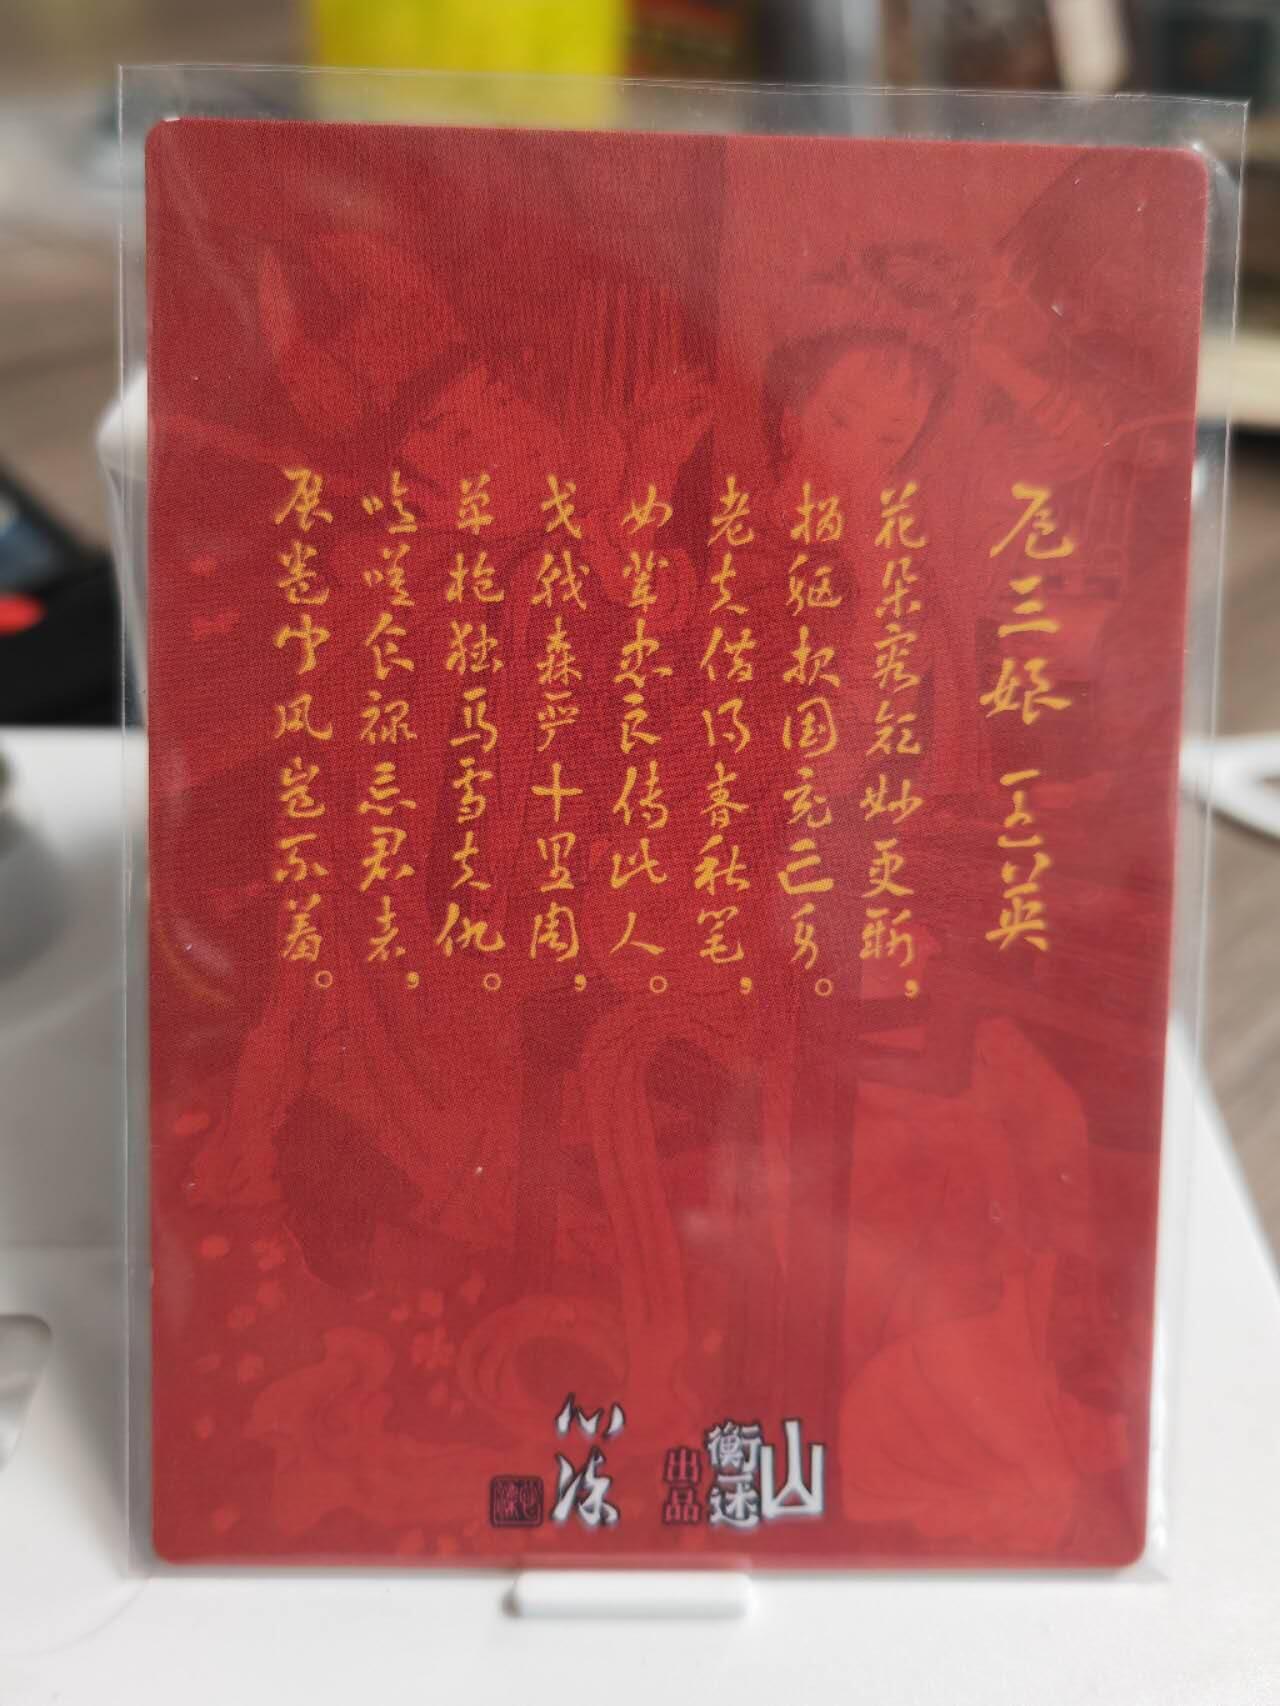 扈三娘 王英
花朵容颜妙更新，
捐躯报国竟亡身。
老夫借得春秋笔，
女辈忠良传此人。
戈戟森严十里周，
单枪独马雪夫仇。
噫嗟食禄忘君者，
展卷闻风岂不羞。
山
衡迷
出品